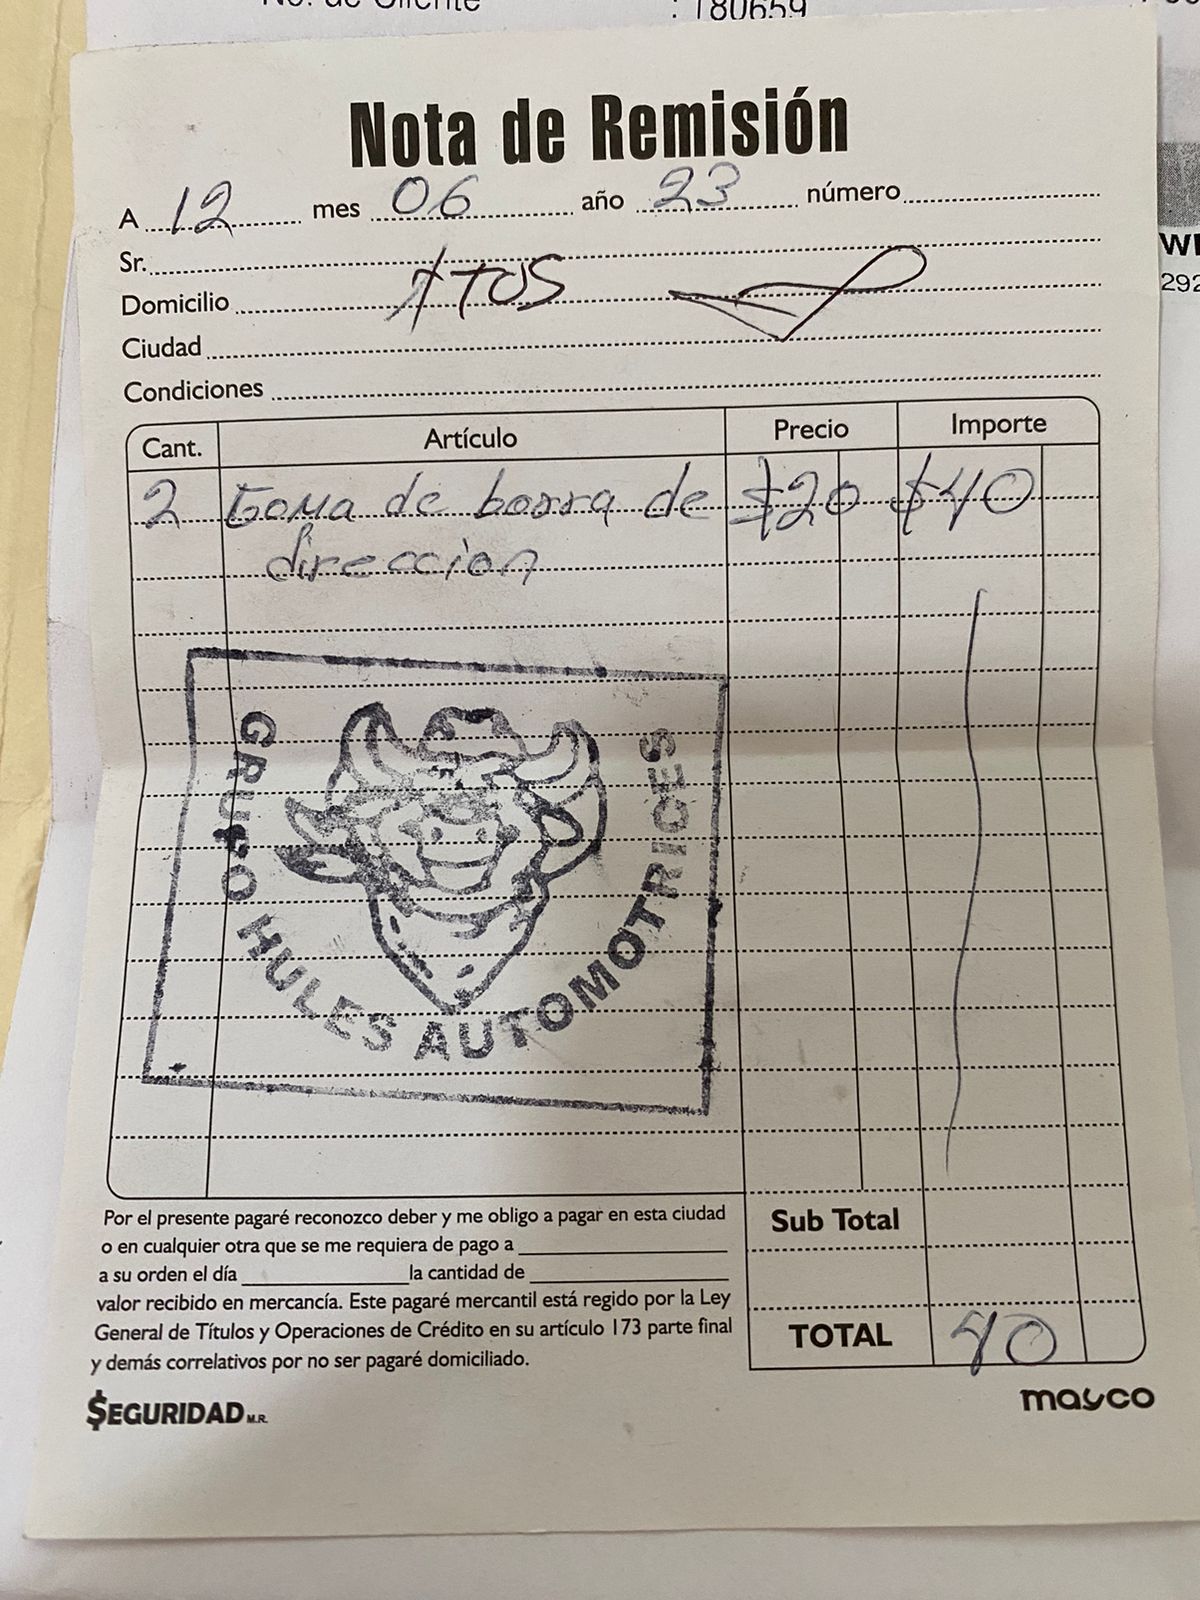 No. de Cliente : 180659
Nota de Remisión
A 12 mes 06 año 23 número
Sr.
Atos
Domicilio
Ciudad
Condiciones
Cant. Artículo Precio Importe
2 Goma de barra de $20 $40
direccion
GRUPO HULES AUTOMOTRICES
Por el presente pagaré reconozco deber y me obligo a pagar en esta ciudad
o en cualquier otra que se me requiera de pago a
a su orden el día la cantidad de
valor recibido en mercancía. Este pagaré mercantil está regido por la Ley
General de Títulos y Operaciones de Crédito en su artículo 173 parte final
y demás correlativos por no ser pagaré domiciliado.
Sub Total
TOTAL 40
$EGURIDAD M.R.
mayco
292